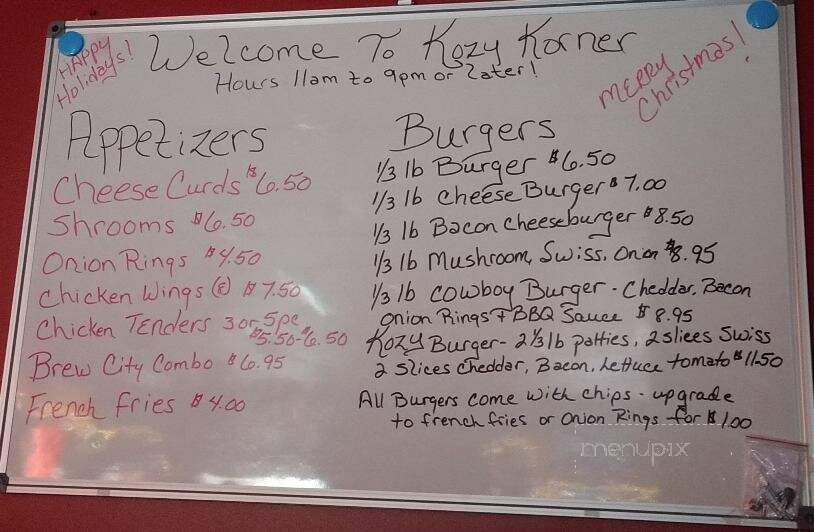 Happy Holidays!
Welcome To Kozy Korner
Hours 11am to 9pm or Later!
MERRY Christmas!
Appetizers
Cheese Curds $6.50
Shrooms $6.50
Onion Rings $4.50
Chicken Wings (8) $7.50
Chicken Tenders 3 or 5pc
$5.50-$6.50
Brew City Combo $6.95
French Fries $4.00
Burgers
1/3 lb Burger $6.50
1/3 lb Cheese Burger $7.00
1/3 lb Bacon Cheeseburger $8.50
1/3 lb Mushroom, Swiss, Onion $8.95
1/3 lb Cowboy Burger - Cheddar, Bacon
Onion Rings + BBQ Sauce $8.95
Kozy Burger - 2 1/3 lb patties, 2 slices Swiss
2 Slices Cheddar, Bacon, Lettuce tomato $11.50
All Burgers come with chips - upgrade
to french fries or Onion Rings for $1.00
menupix